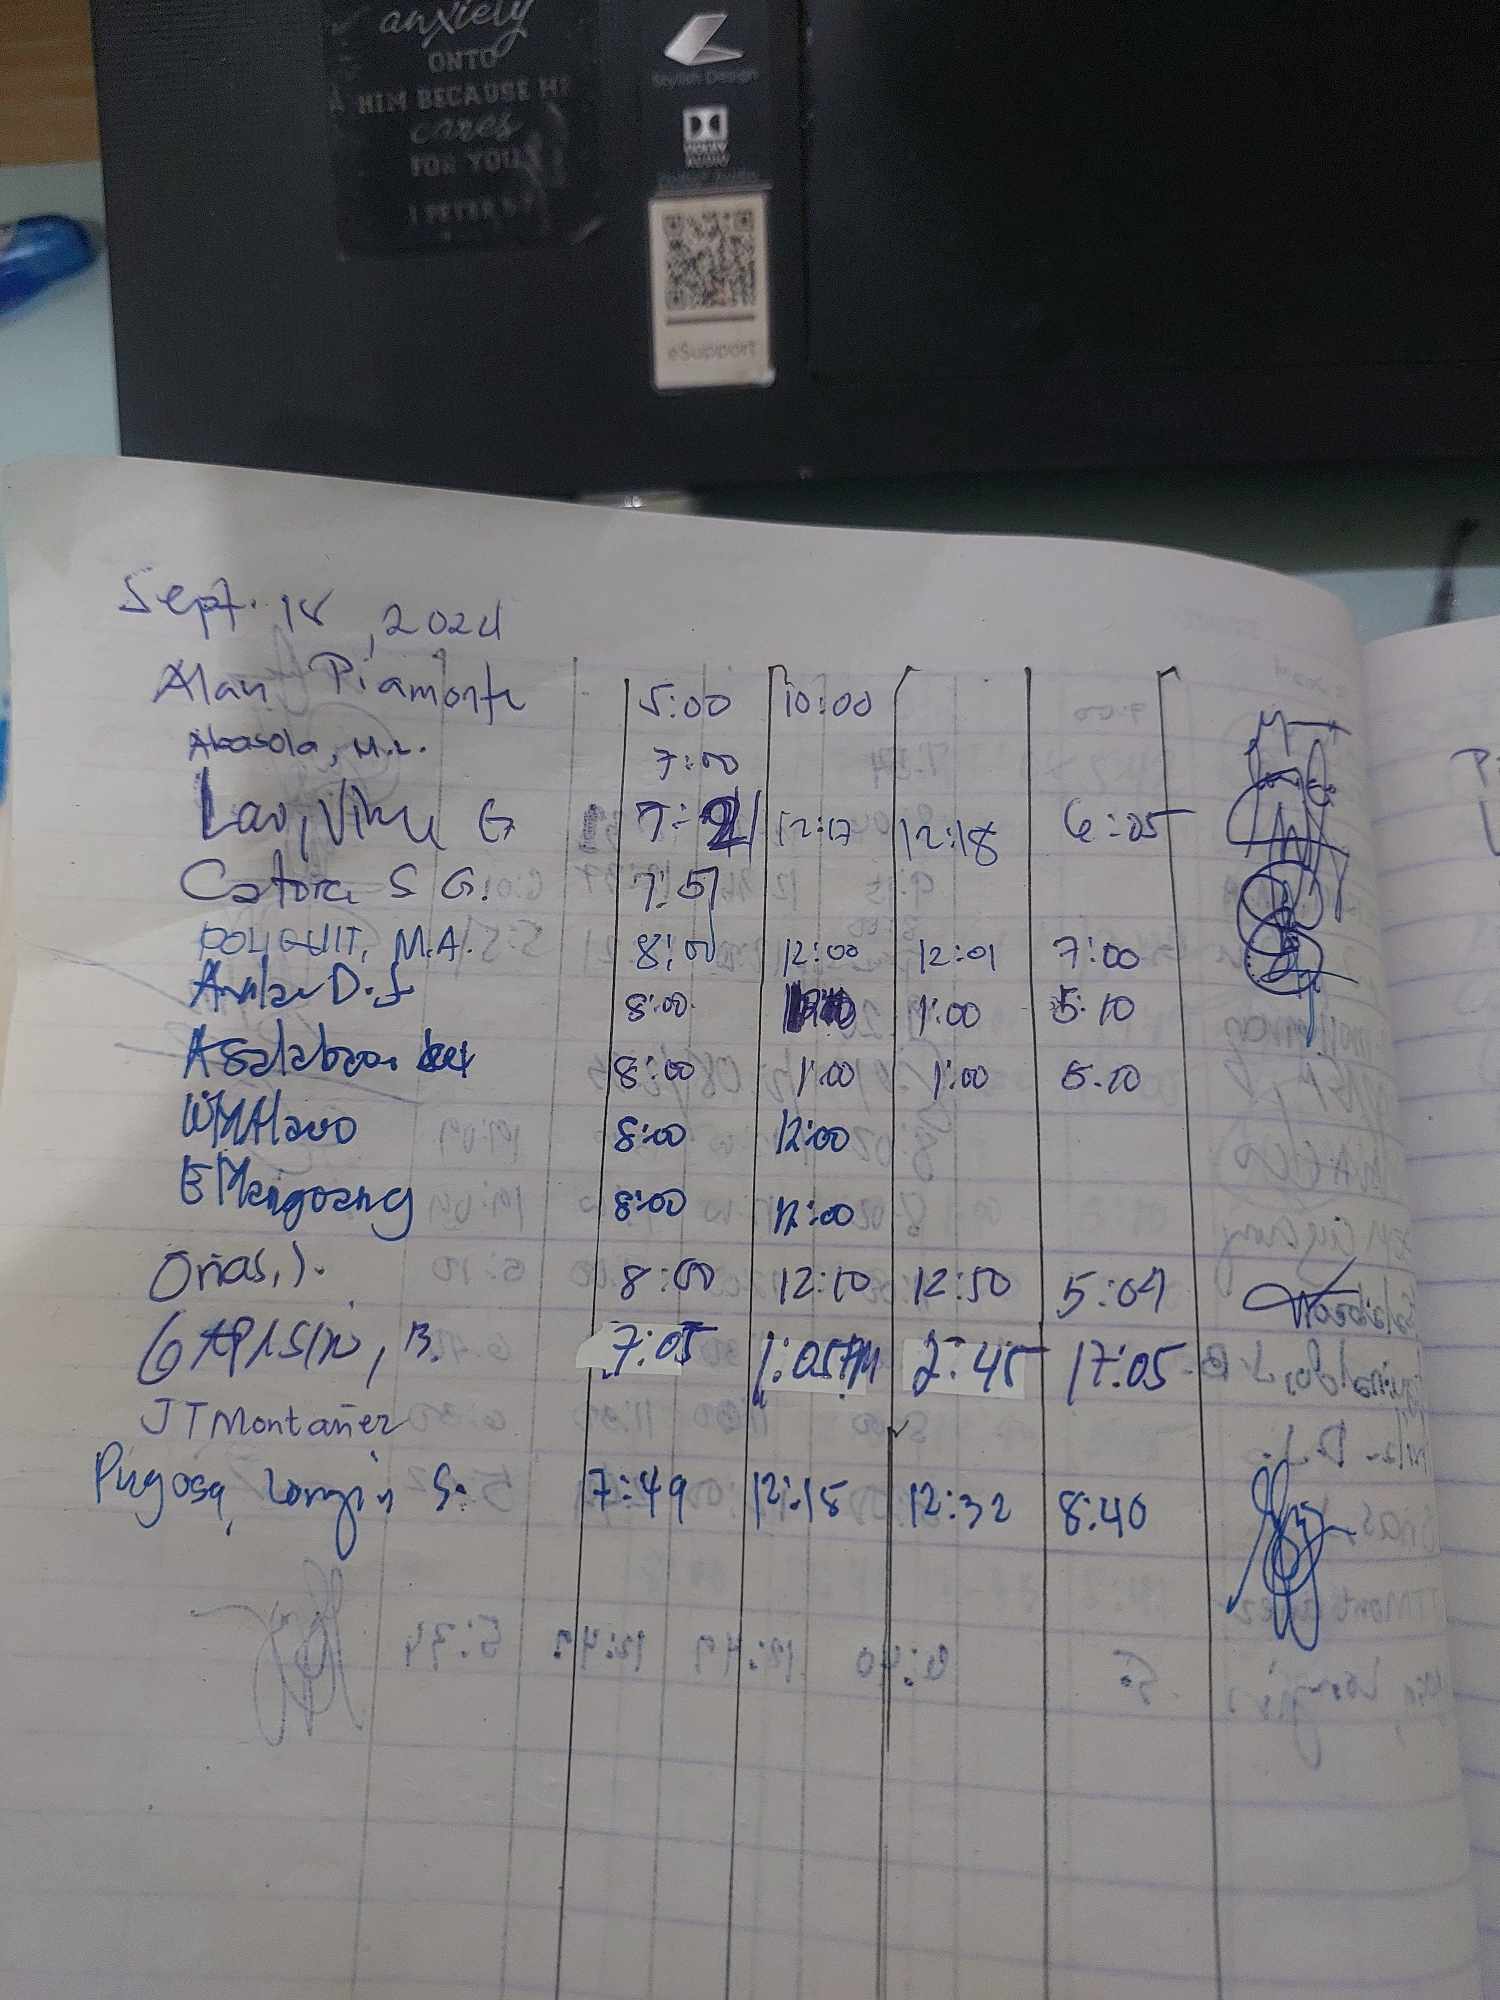 anxiety
ONTO
HIM BECAUSE HE
cares
FOR YOU
1 PETER 5:7
Stylish Design
DOLBY
AUDIO
eSupport
Sept. 18, 2024
Alan Piamonte 5:00 10:00
Abasola, M.L. 7:00
Lao, G 7:21 12:17 12:18 6:05
S G. 7:51
M.A. 8:00 12:00 12:01 7:00
D.J 8:00 1:00 5:10
8:00 1:00 1:00 5:10
8:00 12:00
E 8:00 12:00
Oñas, J. 8:00 12:10 12:50 5:04
GAPASIN, B. 7:05 1:05PM 2:45 17:05
JTMontañez
Pugosa, Longin S. 7:49 12:15 12:32 8:40